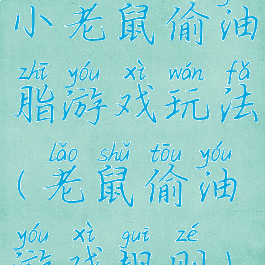 小老鼠偷油
zhī yóu xì wán fǎ
脂游戏玩法
lǎo shǔ tōu yóu
(老鼠偷油
yóu xì guī zé
游戏规则)